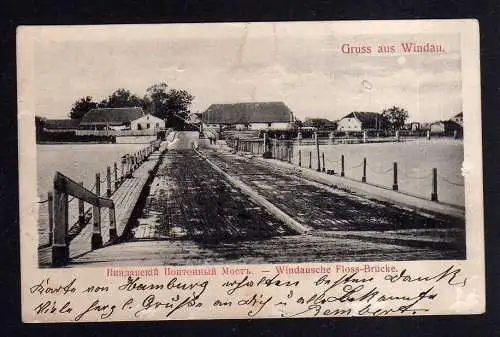 Gruss aus Windau.
Виндавскій Понтонный Мостъ. — Windausche Floss-Brücke.
Karte von Hamburg erhalten besten Dank,
Viele herzl. Grüße an Dich u. alle Bekannte